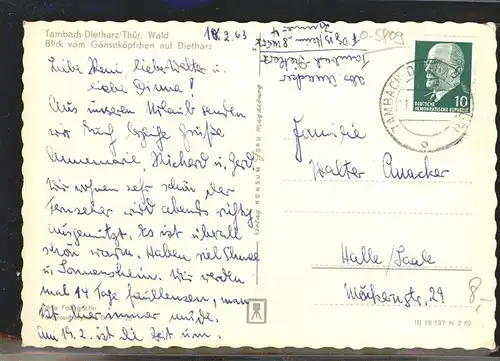 Tambach-Dietharz/Thür. Wald
Blick vom Gänseköpfchen auf Dietharz
18.2.63
Liebe Heni, lieber Walter u.
liebe Diana!
Aus unserem Urlaub senden
wir Euch herzliche Grüße
Annemarie, Richard u. Gerd.
Wir wohnen sehr schön der
Fernseher wird abends richtig
ausgenützt. Es ist überall
schön warm. Haben viel Schnee
u. Sonnenschein. Wir werden
mal 14 Tage faullenzen, man
ist immer müde.
Am 19.2. ist die Zeit um.
Echte Fotografie
Verlag KONSUM-FOKU Magdeburg
Abs. Anacker
Tambach-Dietharz
Zimmer 4
0-5809
TAMBACH-DIETHARZ
DEUTSCHE
DEMOKRATISCHE REPUBLIK
10
Familie
Walter Anacker
Halle/Saale
29
8,-
III 18 197 N 2 62